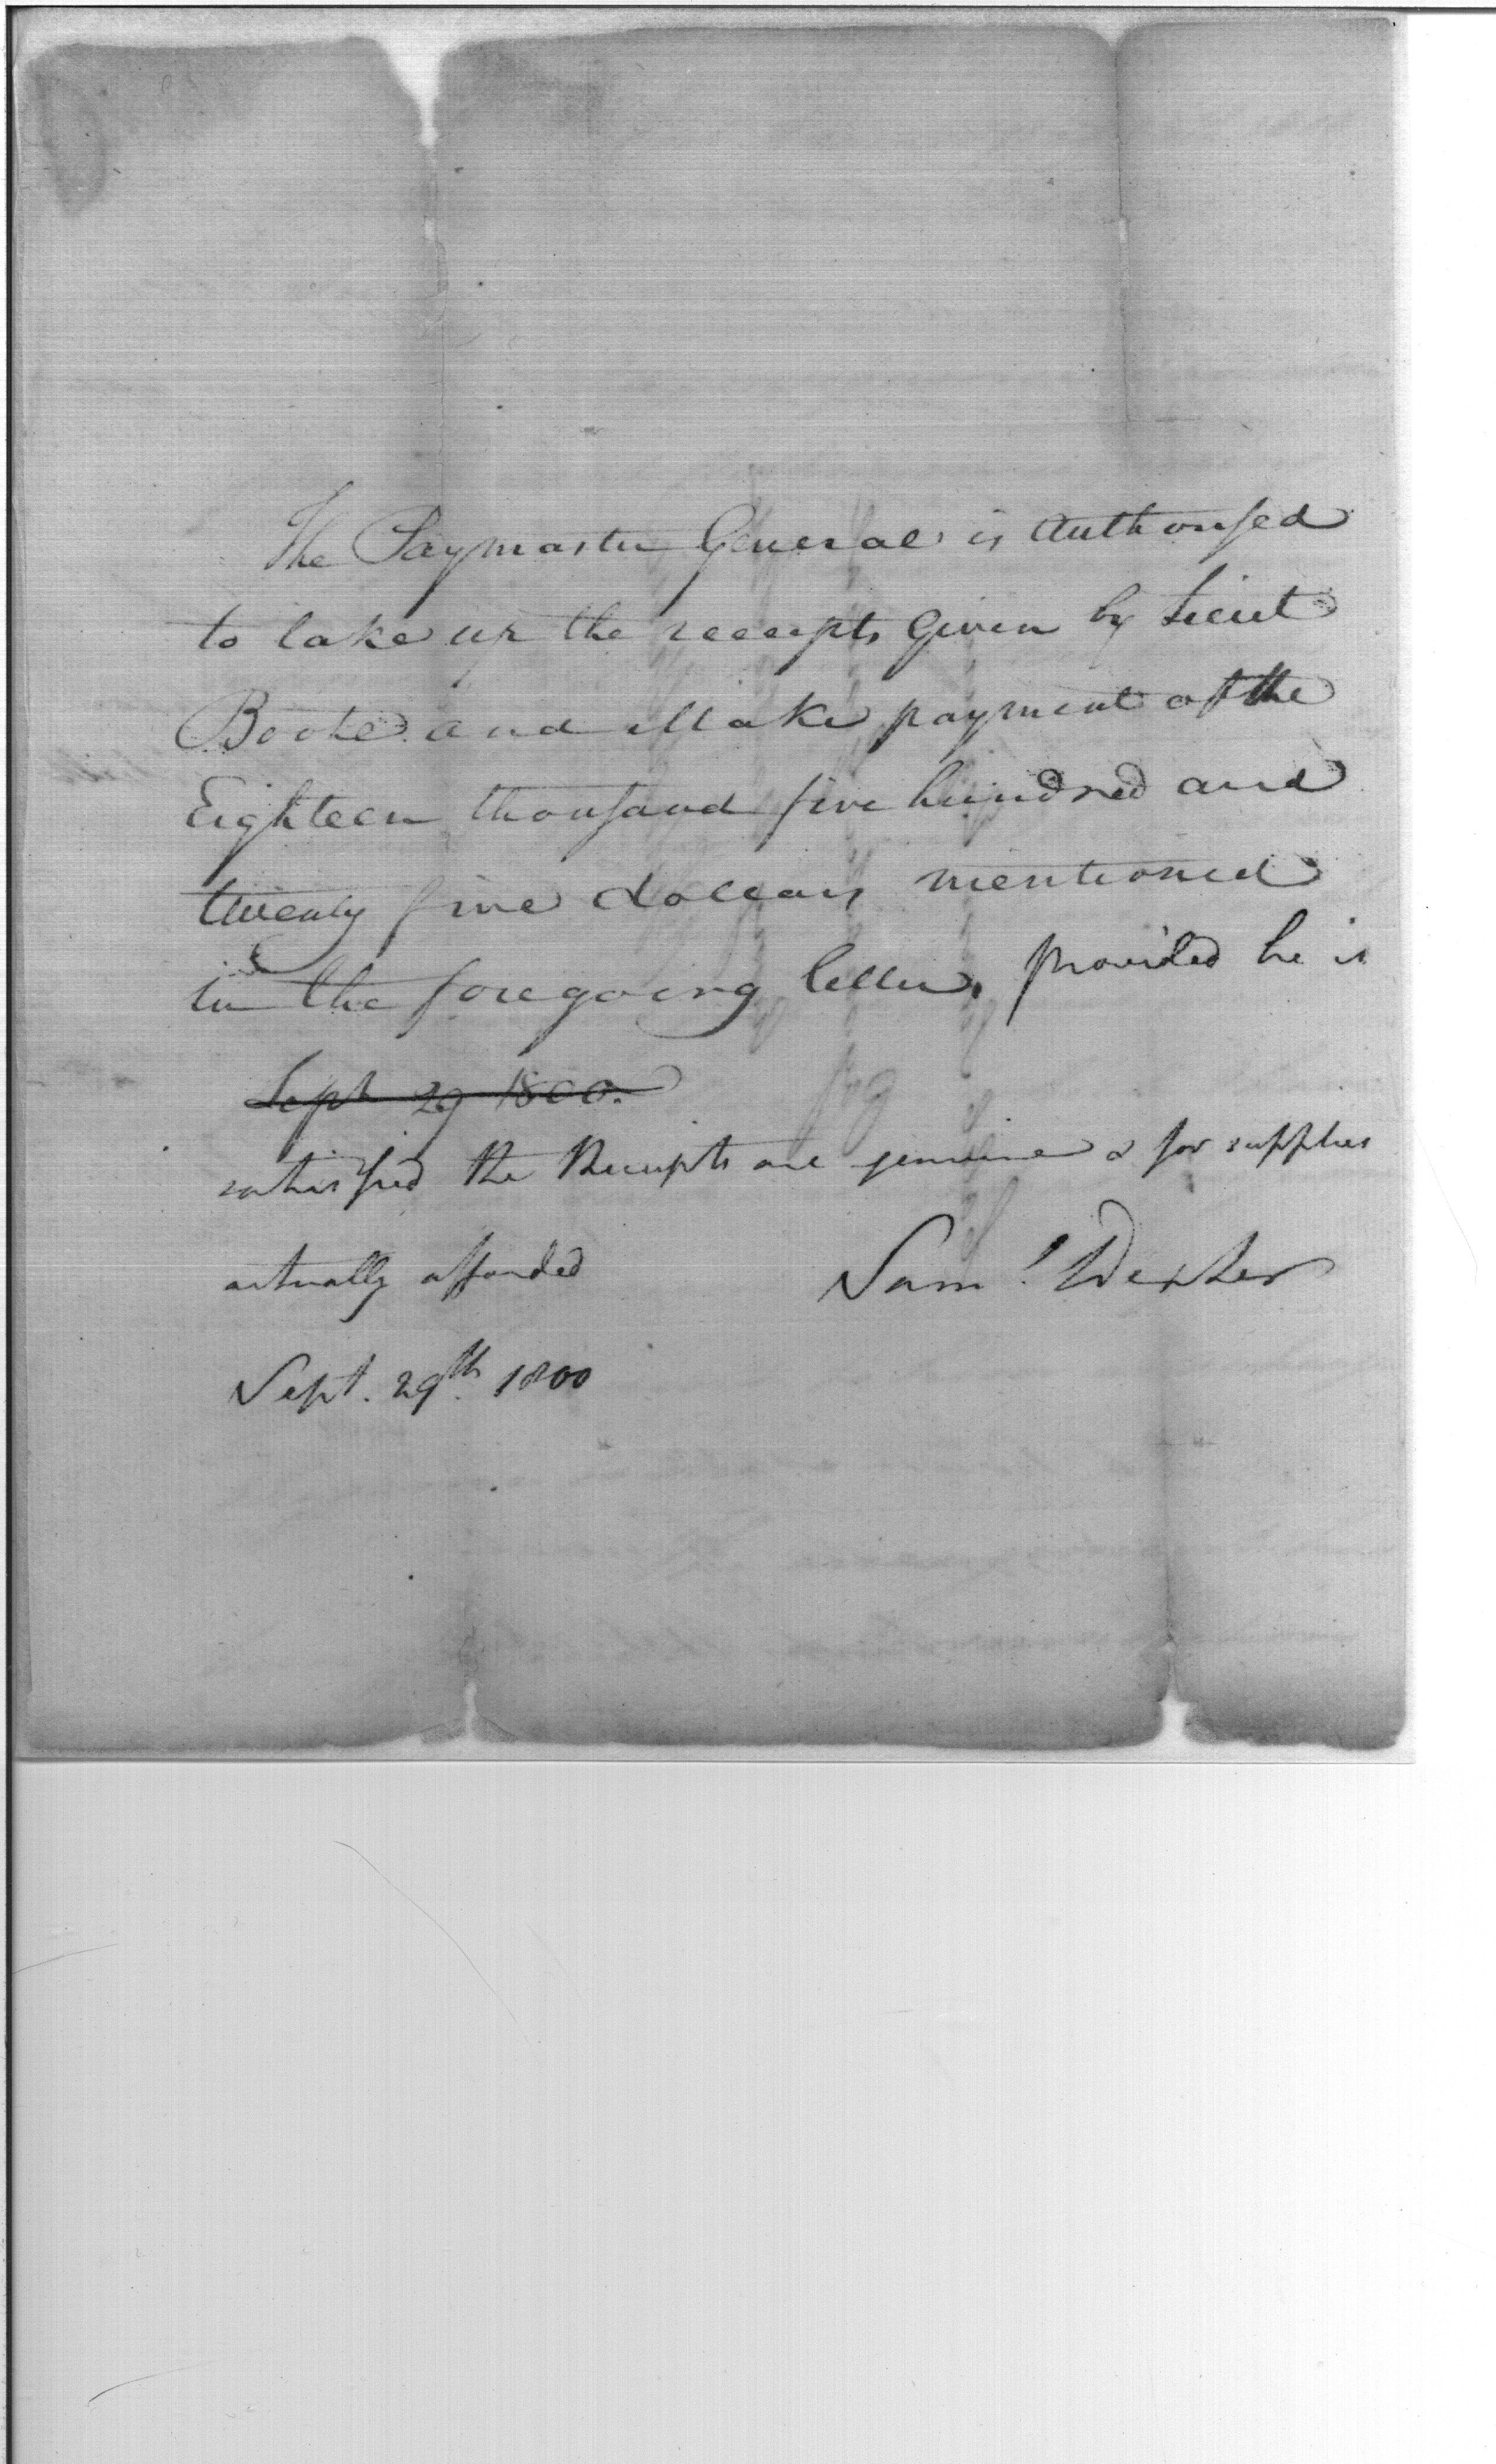 The Paymaster General is Authorised
to take up the receipts Given by Lieut
Boote and Make payment of the
Eighteen thousand five hundred and
twenty five dollars mentioned
in the foregoing letter, provided he is
Sept 29 1800.
satisfied the Receipts are genuine & for supplies
actually afforded
Saml. Dexter
Sept. 29th. 1800